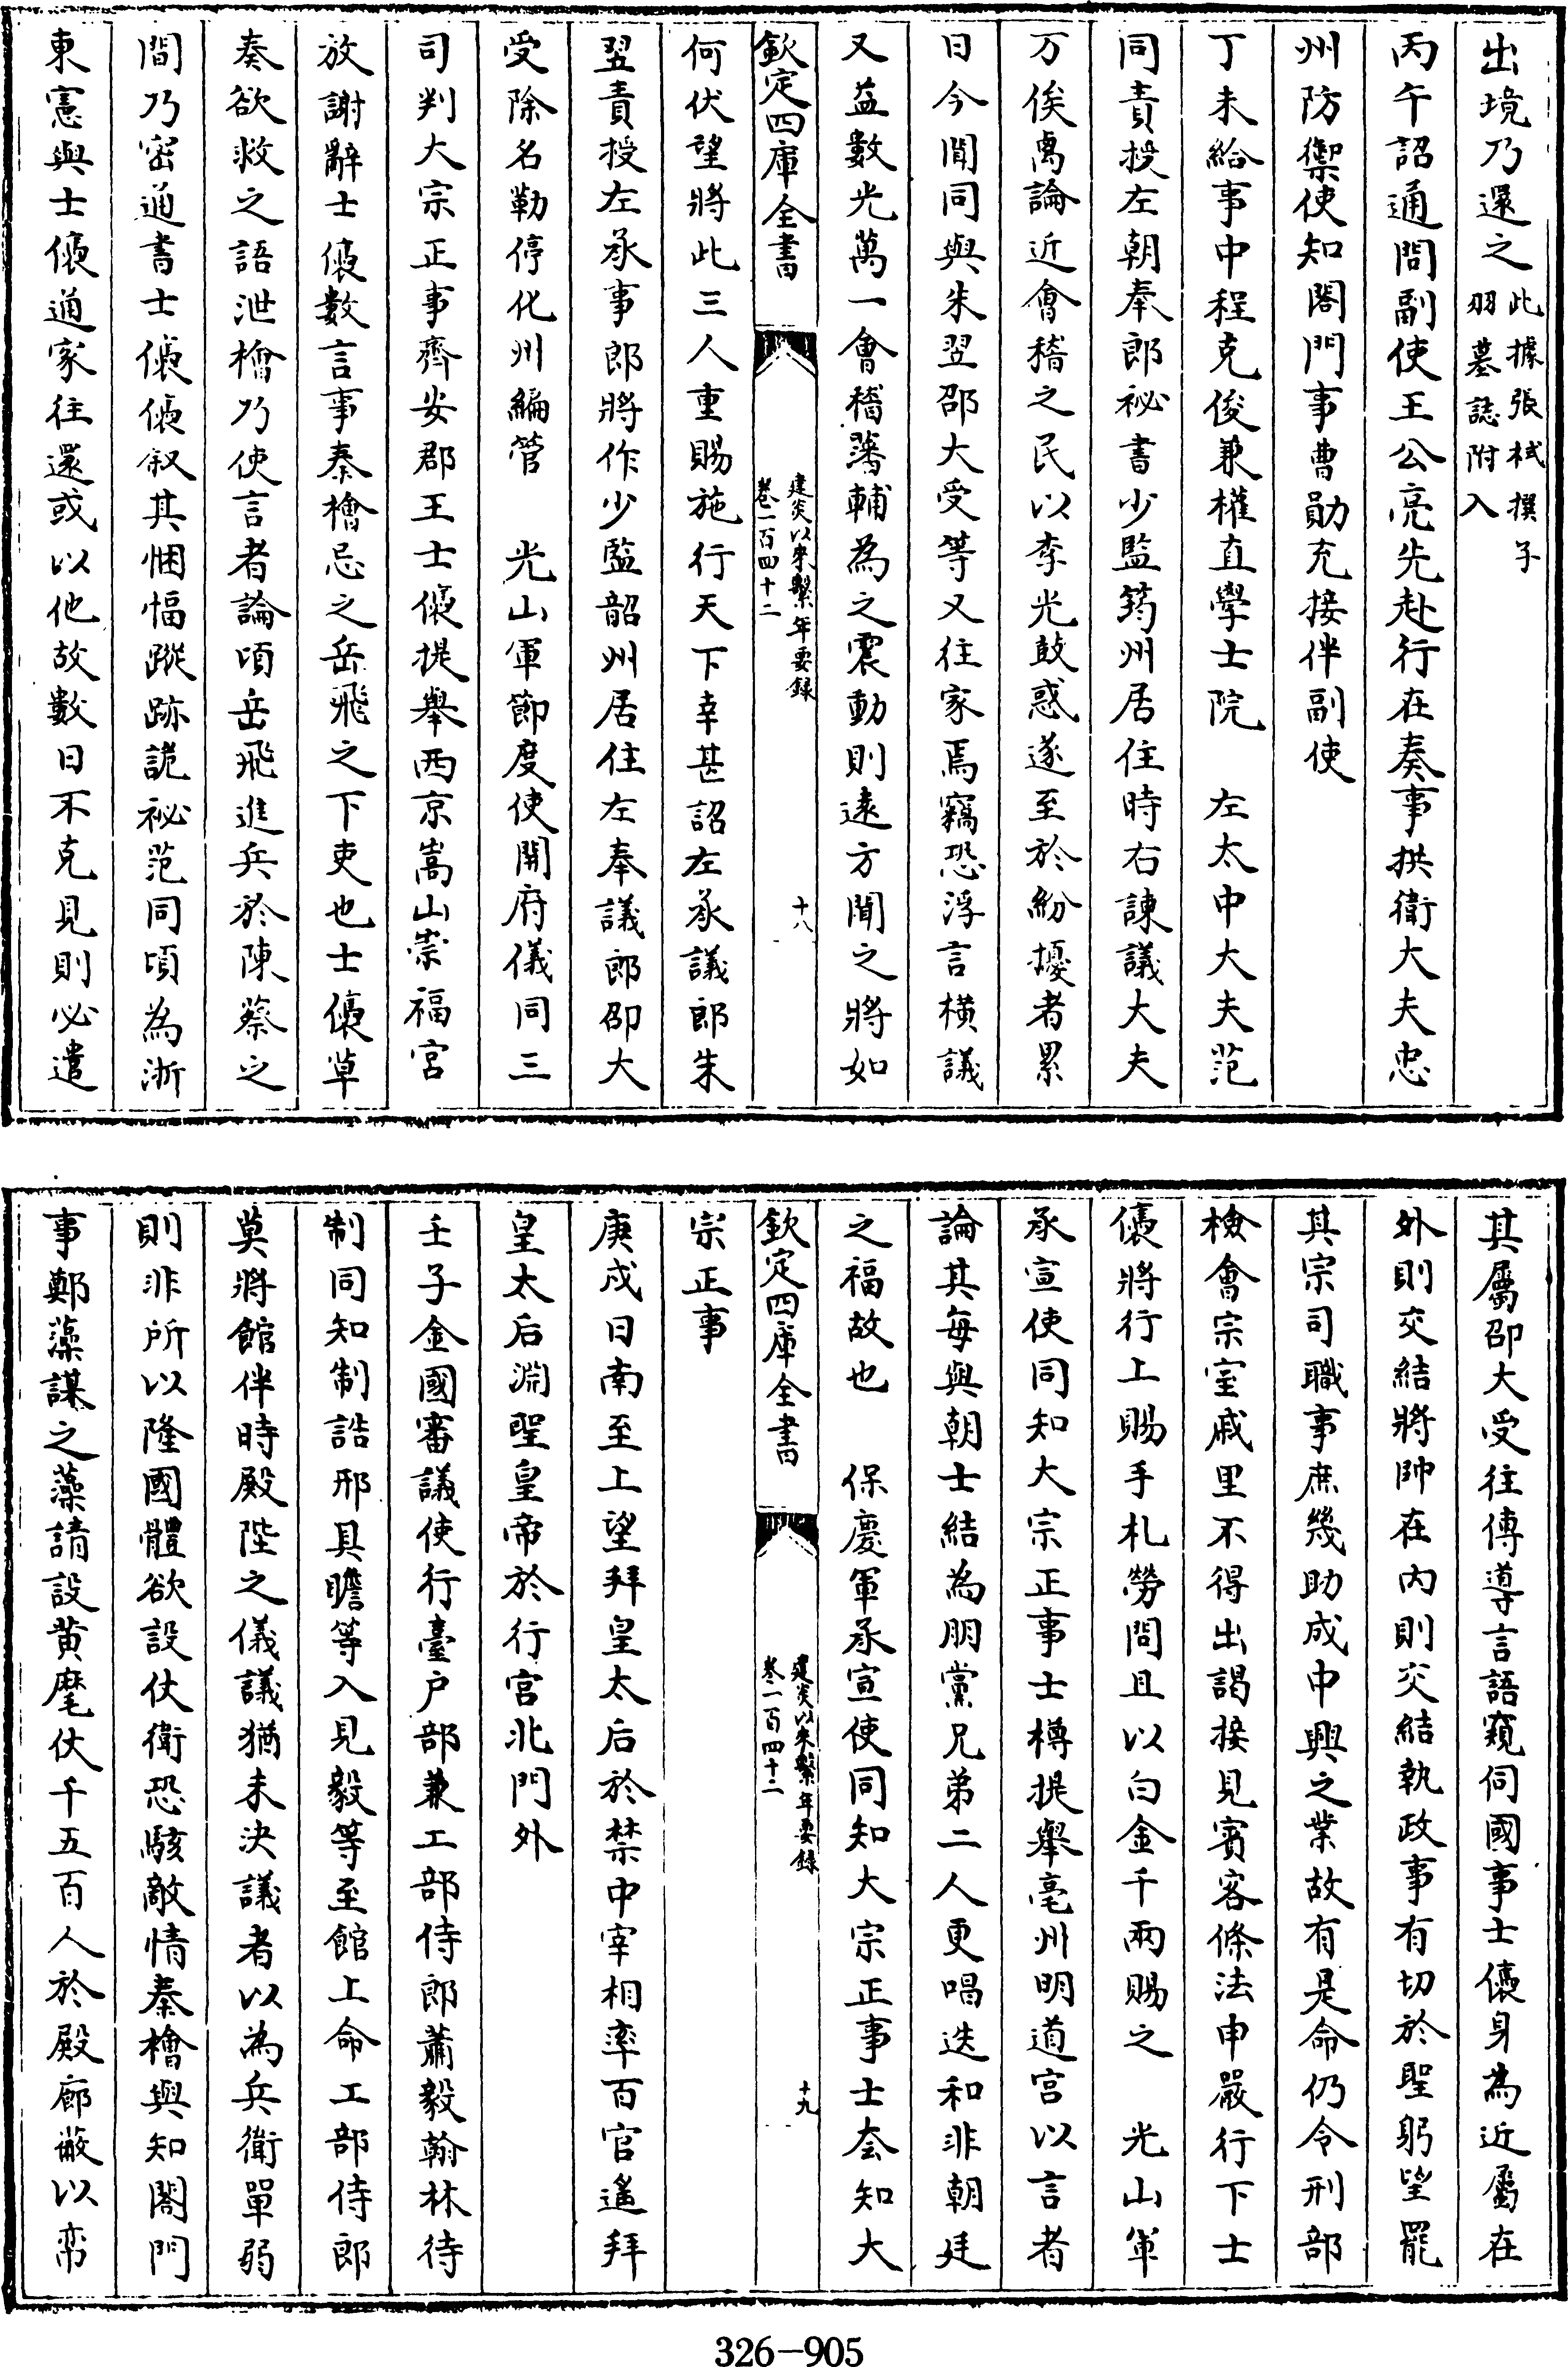 出境乃還之此據張栻撰子羽墓誌附入
丙午詔通問副使王公亮先赴行在奏事拱衛大夫忠
州防禦使知閤門事曹勛充接伴副使
丁未給事中程克俊兼權直學士院　左太中大夫范
同責授左朝奉郎秘書少監筠州居住時右諫議大夫
万俟卨論近會稽之民以李光鼓惑遂至於紛擾者累
日今聞同與朱翌邵大受等又往家焉竊恐浮言橫議
又益數光萬一會稽藩輔為之震動則遠方聞之將如
欽定四庫全書　建炎以來繫年要錄卷一百四十二　十八
何伏望將此三人重賜施行天下幸甚詔左承議郎朱
翌責授左承事郎將作少監韶州居住左奉議郎邵大
受除名勒停化州編管　光山軍節度使開府儀同三
司判大宗正事齊安郡王士㒟提舉西京嵩山崇福宮
放謝辭士㒟數言事秦檜忌之岳飛之下吏也士㒟草
奏欲救之語泄檜乃使言者論頃岳飛進兵於陳蔡之
間乃密通書士㒟㒟叙其悃愊蹤跡詭秘范同頃為浙
東憲與士㒟通家往還或以他故數日不克見則必遣
其屬邵大受往傳導言語窺伺國事士㒟身為近屬在
外則交結將帥在內則交結執政事有切於聖躬望罷
其宗司職事庶幾助成中興之業故有是命仍令刑部
檢會宗室戚里不得出謁接見賓客條法申嚴行下士
㒟將行上賜手札勞問且以白金千兩賜之　光山軍
承宣使同知大宗正事士樽提舉亳州明道宮以言者
論其每與朝士結為朋黨兄弟二人更唱迭和非朝廷
之福故也　保慶軍承宣使同知大宗正事士夽知大
欽定四庫全書　建炎以來繫年要錄卷一百四十二　十九
宗正事
庚戌日南至上望拜皇太后於禁中宰相率百官遙拜
皇太后淵聖皇帝於行宮北門外
壬子金國審議使行臺戶部兼工部侍郎蕭毅翰林待
制同知制誥邢具瞻等入見毅等至館上命工部侍郎
莫將館伴時殿陛之儀議猶未決議者以為兵衛單弱
則非所以隆國體欲設仗衛恐駭敵情秦檜與知閤門
事鄭藻謀之藻請設黃麾仗千五百人於殿廊蔽以帟
326-905